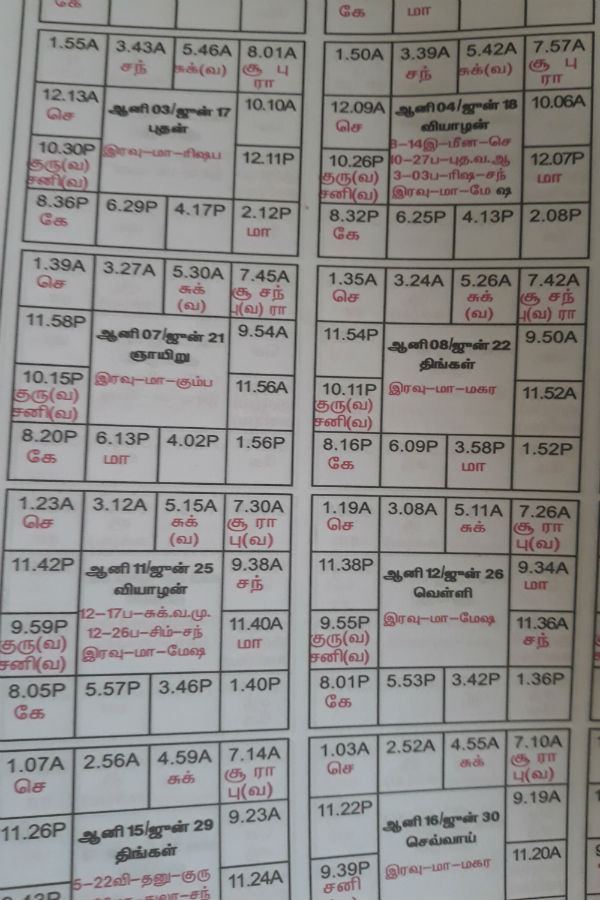 கே
கே மா
1.55A 3.43A 5.46A 8.01A
சந் சுக்(வ) சூ பு
ரா
12.13A ஆனி 03/ஜுன் 17 10.10A
செ புதன்
இரவு-மா-ரிஷப
10.30P 12.11P
குரு(வ)
சனி(வ)
8.36P 6.29P 4.17P 2.12P
கே மா
1.50A 3.39A 5.42A 7.57A
சந் சுக்(வ) சூ பு
ரா
12.09A ஆனி 04/ஜுன் 18 10.06A
செ வியாழன்
8-14இ-மீன-செ
10.26P 10-27ப-புத.வ.ஆ 12.07P
குரு(வ) 3-03ப-ரிஷ-சந் மா
சனி(வ) இரவு-மா-மே ஷ
8.32P 6.25P 4.13P 2.08P
கே
1.39A 3.27A 5.30A 7.45A
செ சுக் சூ சந்
(வ) பு(வ) ரா
11.58P ஆனி 07/ஜுன் 21 9.54A
ஞாயிறு
10.15P இரவு-மா-கும்ப 11.56A
குரு(வ)
சனி(வ)
8.20P 6.13P 4.02P 1.56P
கே மா
1.35A 3.24A 5.26A 7.42A
செ சுக் சூ சந்
(வ) பு(வ) ரா
11.54P ஆனி 08/ஜுன் 22 9.50A
திங்கள்
10.11P இரவு-மா-மகர 11.52A
குரு(வ)
சனி(வ)
8.16P 6.09P 3.58P 1.52P
கே மா
1.23A 3.12A 5.15A 7.30A
செ சுக் சூ ரா
(வ) பு(வ)
11.42P ஆனி 11/ஜுன் 25 9.38A
வியாழன் சந்
12-17ப-சுக்.வ.மு.
9.59P 12-26ப-சிம்-சந் 11.40A
குரு(வ) இரவு-மா-மேஷ மா
சனி(வ)
8.05P 5.57P 3.46P 1.40P
கே
1.19A 3.08A 5.11A 7.26A
செ சுக் சூ ரா
பு(வ)
11.38P ஆனி 12/ஜுன் 26 9.34A
வெள்ளி மா
9.55P இரவு-மா-மேஷ 11.36A
குரு(வ) சந்
சனி(வ)
8.01P 5.53P 3.42P 1.36P
கே
1.07A 2.56A 4.59A 7.14A
செ சுக் சூ ரா
பு(வ)
11.26P ஆனி 15/ஜுன் 29 9.23A
திங்கள்
5-22வி-தனு-குரு 11.24A
1.03A 2.52A 4.55A 7.10A
செ சுக் சூ ரா
பு(வ)
11.22P ஆனி 16/ஜுன் 30 9.19A
செவ்வாய்
9.39P இரவு-மா-மகர 11.20A
சனி